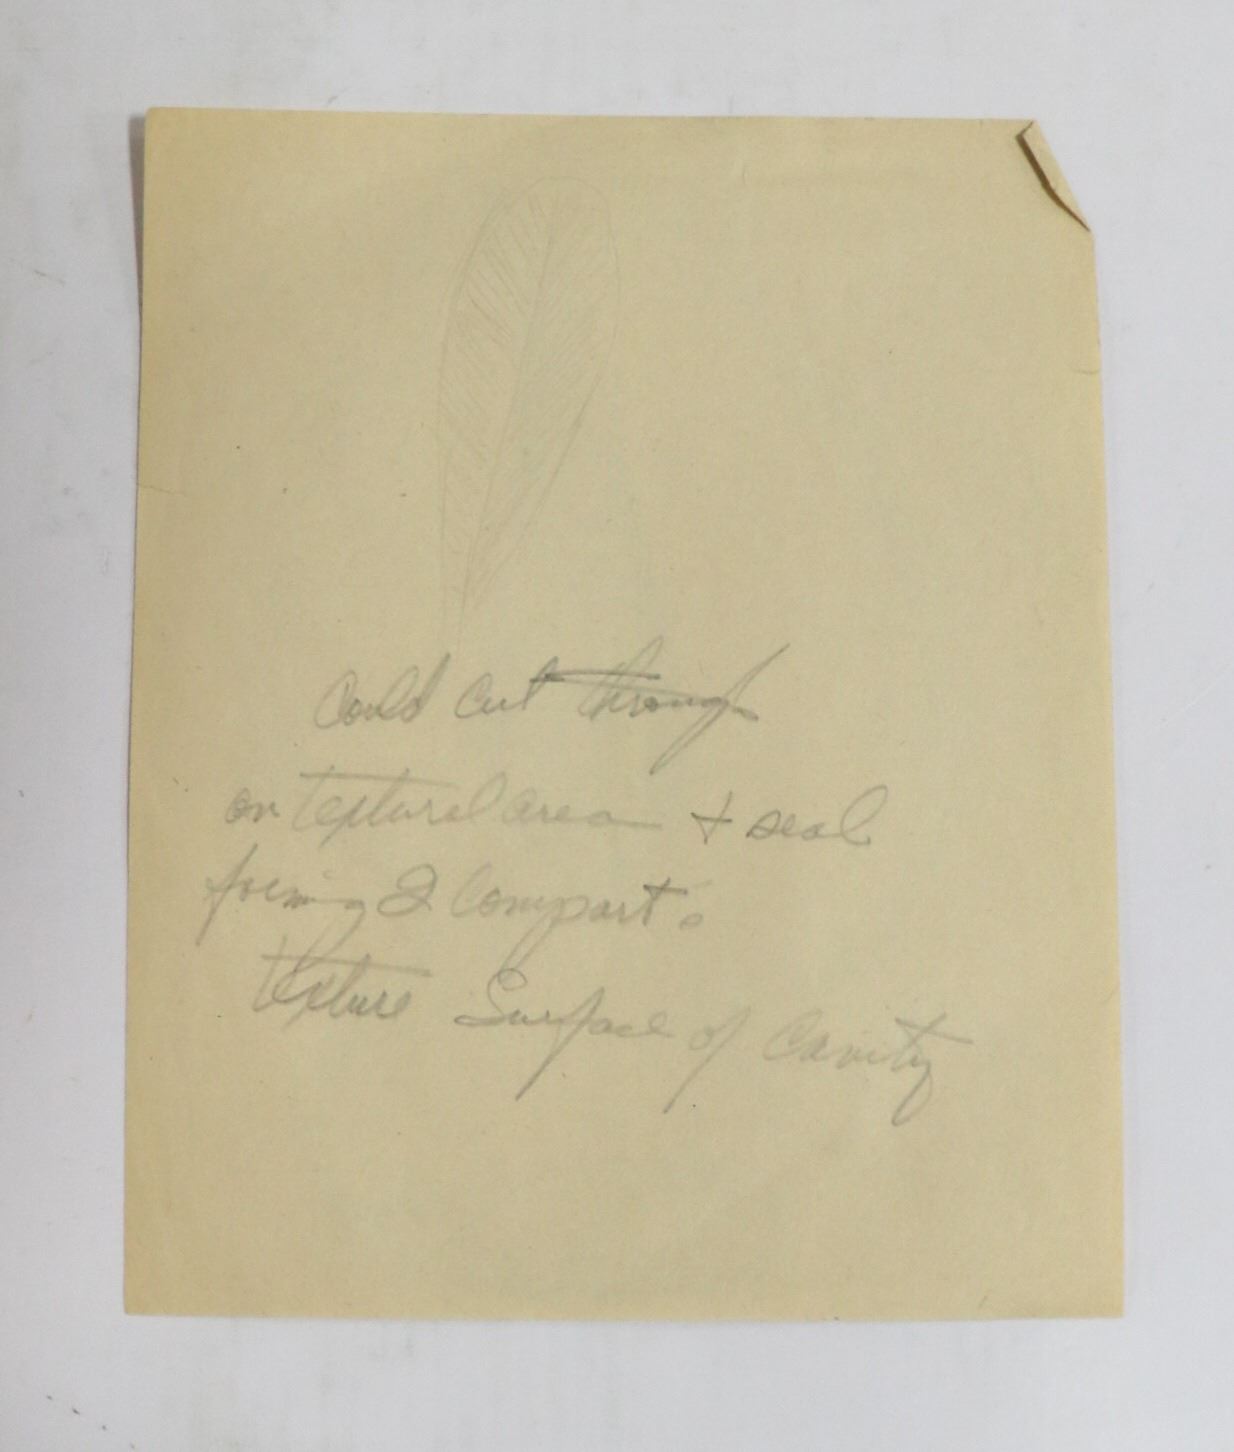 Could cut through
on textured area + seal
forming 2 Compart.
Texture Surface of Cavity